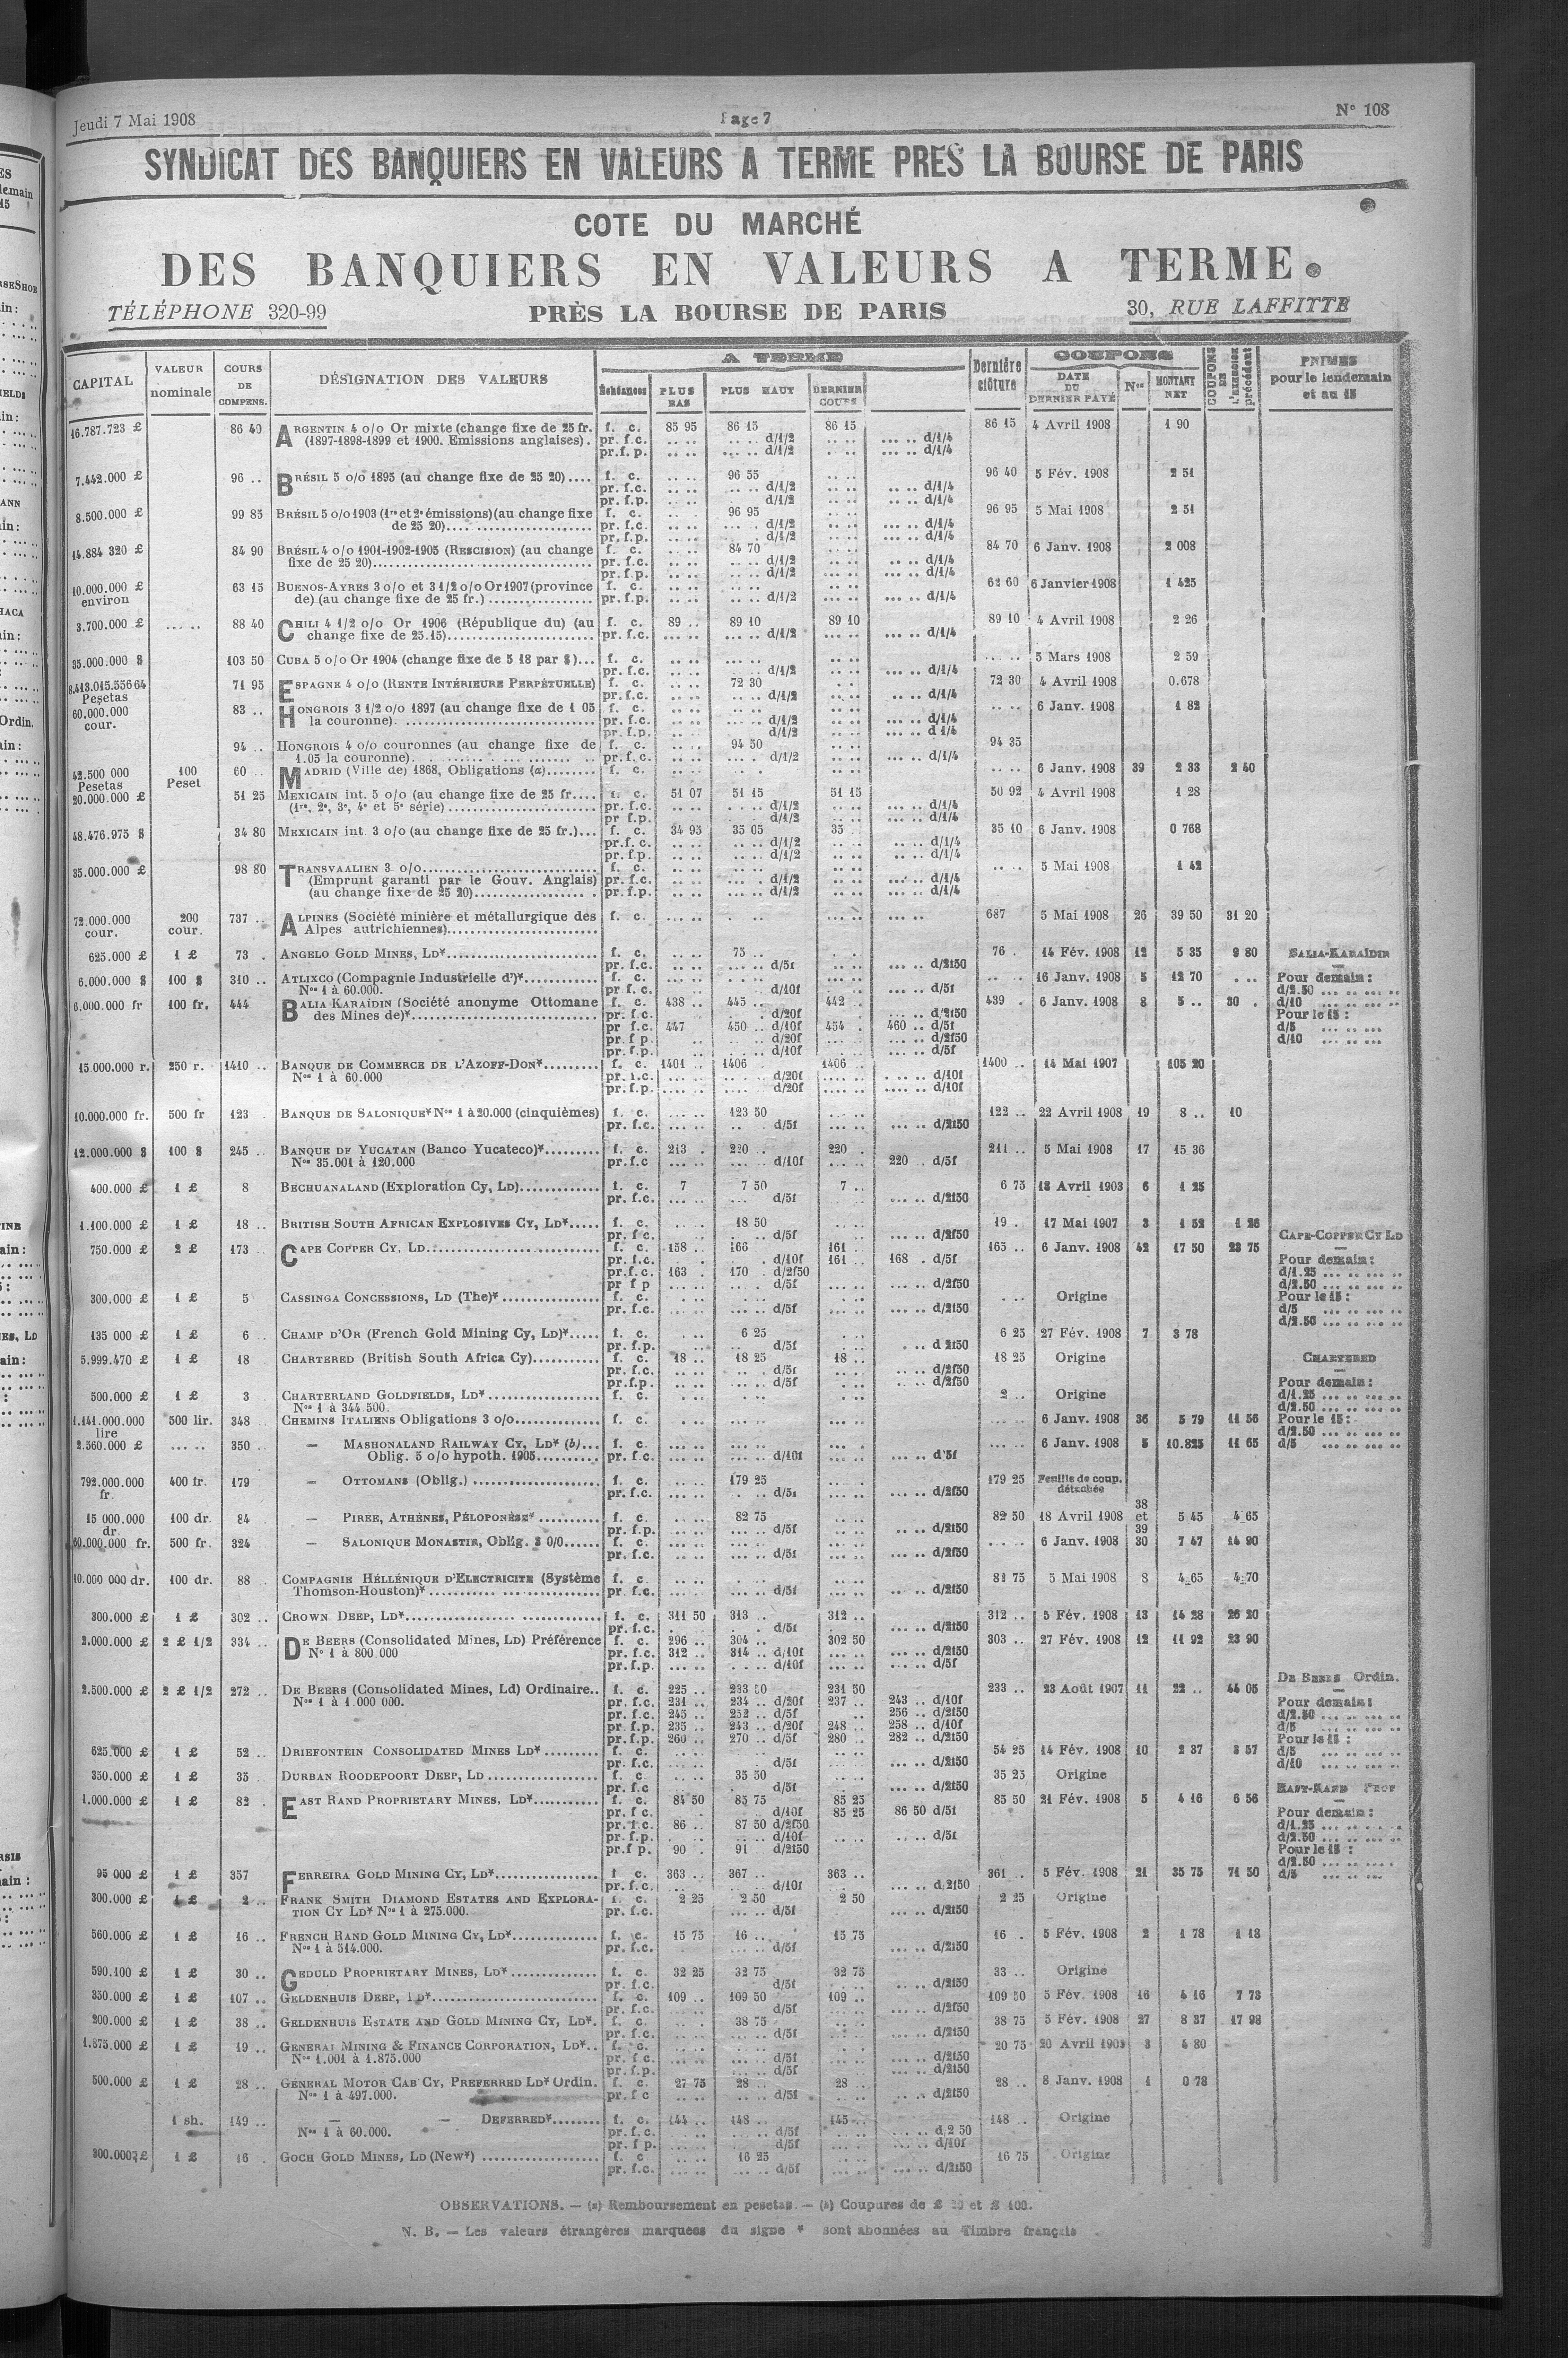 Jeudi 7 Mai 1908
Page 7
N° 108
SYNDICAT DES BANQUIERS EN VALEURS A TERME PRES LA BOURSE DE PARIS
COTE DU MARCHÉ
DES BANQUIERS EN VALEURS A TERME
TÉLÉPHONE 320-99 PRÈS LA BOURSE DE PARIS 30, RUE LAFFITTE
CAPITAL VALEUR nominale COURS DE COMPENS. DÉSIGNATION DES VALEURS A TERME Échéances PLUS BAS PLUS HAUT DERNIER COURS Dernière clôture COUPONS DATE DU DERNIER PAYÉ Nos MONTANT NET COUPONS DE L'EXERCICE précédent PRIMES pour le lendemain et au 15
16.787.723 £ 86 40 ARGENTIN 4 o/o Or mixte (change fixe de 25 fr. f. c. 85 95 86 15 86 15 86 15 4 Avril 1908 1 90
(1897-1898-1899 et 1900. Emissions anglaises). pr. f.c. .. .. ... .. d/1/2 .. .. ... .. d/1/4
pr. f. p. .. .. ... .. d/1/2 ... .. d/1/4
7.442.000 £ 96 .. BRÉSIL 5 o/o 1895 (au change fixe de 25 20).... f. c. 96 55 96 40 5 Fév. 1908 2 51
pr. f.c. .. .. d/1/2 .. .. d/1/4
pr. f.p. d/1/2 d/1/4
8.500.000 £ 99 85 BRÉSIL 5 o/o 1903 (1re et 2e émissions) (au change fixe f. c. 96 95 96 95 5 Mai 1908 2 51
de 25 20)........ pr. f.c. d/1/2 d/1/4
pr. f.p. d/1/2 d/1/4
14.884 320 £ 84 90 BRÉSIL 4 o/o 1901-1902-1905 (RESCISION) (au change f. c. 84 70 84 70 6 Janv. 1908 2 008
fixe de 25 20)........ pr. f.c. d/1/2 d/1/4
pr. f.p. d/1/2 d/1/4
10.000.000 £ environ 63 15 BUENOS-AYRES 3 o/o et 3 1/2 o/o Or 1907 (province f. c. 62 60 6 Janvier 1908 1 425
de) (au change fixe de 25 fr.) ........ pr. f.p. d/1/2 d/1/4
3.700.000 £ ... .. 88 40 CHILI 4 1/2 o/o Or 1906 (République du) (au f. c. 89 .. 89 10 89 10 89 10 4 Avril 1908 2 26
change fixe de 25.15)........ pr. f.c. d/1/2 d/1/4
35.000.000 $ 103 50 CUBA 5 o/o Or 1904 (change fixe de 5 18 par $)... f. c. 5 Mars 1908 2 59
pr. f.c. d/1/2 d/1/4
8.413.015.556 64 Pesetas 71 95 ESPAGNE 4 o/o (RENTE INTÉRIEURE PERPÉTUELLE) f. c. 72 30 72 30 4 Avril 1908 0.678
pr. f.c. d/1/2 d/1/4
60.000.000 cour. 83 .. HONGROIS 3 1/2 o/o 1897 (au change fixe de 1 05 f. c. 6 Janv. 1908 1 82
la couronne). ........ pr. f.c. d/1/2 d/1/4
pr. f.p. d/1/2 d 1/4
94 .. HONGROIS 4 o/o couronnes (au change fixe de f. c. 94 50 94 35
1.05 la couronne)........ pr. f.c. d/1/2 d/1/4
42.500 000 Pesetas 100 Peset 60 .. MADRID (Ville de) 1868, Obligations (a)........ f. c. 6 Janv. 1908 39 2 33 2 40
20.000.000 £ 51 25 MEXICAIN int. 5 o/o (au change fixe de 25 fr.... f. c. 51 07 51 15 51 15 50 92 4 Avril 1908 1 28
(1re, 2e, 3e, 4e et 5e série) ........ pr. f.c. d/1/2 d/1/4
pr f.p. d/1/2 d/1/4
48.476.975 $ 34 80 MEXICAIN int. 3 o/o (au change fixe de 25 fr.)... f. c. 34 95 35 05 35 35 10 6 Janv. 1908 0 768
pr. f. c. d/1/2 d/1/4
pr. f.p. d/1/2 d/1/4
35.000.000 £ 98 80 TRANSVAALIEN 3 o/o........ f. c. 5 Mai 1908 1 42
(Emprunt garanti par le Gouv. Anglais) pr. f.c. d/1/2 d/1/4
(au change fixe de 25 20)........ pr. f.p. d/1/2 d/1/4
72.000.000 cour. 200 cour. 737 .. ALPINES (Société minière et métallurgique des f. c. 687 5 Mai 1908 26 39 50 31 20
Alpes autrichiennes)........
625.000 £ 1 £ 73 . ANGELO GOLD MINES, LD*........ f. c. 75 .. 76 . 14 Fév. 1908 12 5 35 9 80 BALIA-KARAÏDIN
pr. f.c. d/5f d/2f50
6.000.000 $ 100 $ 310 .. ATLIXCO (Compagnie Industrielle d')*........ f. c. 16 Janv. 1908 5 12 70 Pour demain :
Nos 1 à 60.000. pr f. c. d/10f d/5f d/2.50
6.000.000 fr 100 fr. 444 BALIA KARAÏDIN (Société anonyme Ottomane f. c. 438 .. 445 .. 442 .. 439 . 6 Janv. 1908 8 5 .. 30 . d/10
des Mines de)*........ pr. f.c. d/20f d/2f50 Pour le 15 :
pr f.c. 447 450 .. d/10f 454 . 460 .. d/5f d/5
pr. f p. d/20f d/2f50 d/10
pr. f.p. d/10f d/5f
15.000.000 r. 250 r. 1410 .. BANQUE DE COMMERCE DE L'AZOFF-DON*........ f. c. 1401 .. 1406 1406 .. 1400 .. 14 Mai 1907 105 20
Nos 1 à 60.000 pr. f.c. d/20f d/10f
pr. f.p. d/20f d/10f
10.000.000 fr. 500 fr 123 BANQUE DE SALONIQUE* Nos 1 à 20.000 (cinquièmes) f. c. 123 50 122 .. 22 Avril 1908 19 8 .. 10
pr. f.c. d/5f d/2f50
12.000.000 $ 100 $ 245 .. BANQUE DE YUCATAN (Banco Yucateco)*........ f. c. 213 . 220 .. 220 . 211 .. 5 Mai 1908 17 15 36
Nos 35.001 à 120.000 pr.f.c d/10f 220 . d/5f
400.000 £ 1 £ 8 BECHUANALAND (Exploration Cy, LD)........ f. c. 7 7 50 7 .. 6 75 18 Avril 1903 6 1 25
pr. f.c. d/5f d/2f50
1.100.000 £ 1 £ 18 .. BRITISH SOUTH AFRICAN EXPLOSIVES CY, LD*..... f. c. 18 50 19 . 17 Mai 1907 3 1 52 1 26
pr. f c. d/5f d/2f50 CAPE-COPPER CY LD
750.000 £ 2 £ 173 .. CAPE COPPER CY, LD........ f. c. 158 .. 166 161 .. 165 .. 6 Janv. 1908 42 17 50 23 75
pr. f.c. d/10f 161 .. 168 . d/5f Pour demain :
pr. f.c. 163 . 170 . d/2f50 d/1.25
pr f p d/5f d/2f50 d/2.50
300.000 £ 1 £ 5 CASSINGA CONCESSIONS, LD (The)* ........ f. c. Origine Pour le 15 :
pr. f.c. d/5f d/2f50 d/5
d/2.50
135 000 £ 1 £ 6 .. CHAMP D'OR (French Gold Mining Cy, LD)*..... f. c. 6 25 6 25 27 Fév. 1908 7 3 78
pr. f.p. d/5f d 2f50
5.999.470 £ 1 £ 18 CHARTERED (British South Africa Cy)........ f. c. 18 .. 18 25 18 .. 18 25 Origine CHARTERED
pr. f.c. d/5f d/2f50
pr.f.p. d/5f d/2f50 Pour demain :
500.000 £ 1 £ 3 CHARTERLAND GOLDFIELDS, LD*........ f. c. 2 .. Origine d/1.25
Nos 1 à 344 500. d/2.50
1.141.000.000 lire 500 lir. 348 .. CHEMINS ITALIENS Obligations 3 o/o........ f. c. 6 Janv. 1908 36 5 79 11 56 Pour le 15 :
d/2.50
2.560.000 £ ... .. 350 .. — MASHONALAND RAILWAY CY, LD* (b)... f. c. 6 Janv. 1908 5 10.825 11 65 d/5
Oblig. 5 o/o hypoth. 1905........ pr. f.c. d/10f d'5f
792.000.000 fr. 400 fr. 179 — OTTOMANS (Oblig.) ........ f. c. 179 25 179 25 Feuille de coup. détachée
pr. f.c. d/5f d/2f50
15 000.000 dr. 100 dr. 84 — PIRÉE, ATHÈNES, PÉLOPONÈSE* ........ f. c. 82 75 82 50 18 Avril 1908 38 et 39 5 45 4 65
pr. f.p. d/5f d/2f50
60.000.000 fr. 500 fr. 324 — SALONIQUE MONASTIR, Oblig. 3 0/0...... f. c. 6 Janv. 1908 30 7 47 14 90
pr. f.c. d/5f d/2f50
10.000 000 dr. 100 dr. 88 COMPAGNIE HÉLLÉNIQUE D'ELECTRICITE (Système f. c. 81 75 5 Mai 1908 8 4 65 4 70
Thomson-Houston)*........ pr f.c. d/5f d/2f50
300.000 £ 1 £ 302 .. CROWN DEEP, LD*........ f. c. 311 50 313 .. 312 .. 312 .. 5 Fév. 1908 13 14 28 26 20
pr. f.c. d/5f d/2f50
2.000.000 £ 2 £ 1/2 334 .. DE BEERS (Consolidated Mines, LD) Préférence f. c. 296 .. 304 .. 302 50 303 .. 27 Fév. 1908 12 11 92 23 90
N° 1 à 800.000 pr. f.c. 312 .. 314 .. d/10f d/2f50
pr. f.p. d/10f d/5f DE BEERS Ordin.
2.500.000 £ 2 £ 1/2 272 .. DE BEERS (Consolidated Mines, Ld) Ordinaire.. f. c. 225 .. 233 50 231 50 233 .. 23 Août 1907 11 22 .. 44 05
Nos 1 à 1.000 000. pr. f.c. 231 .. 234 .. d/20f 237 .. 243 .. d/10f Pour demain :
pr. f.c. 245 .. 252 .. d/5f 256 .. d/2f50 d/2.50
pr. f.p. 235 243 .. d/20f 248 .. 258 .. d/10f d/5
pr. f.p. 260 .. 270 .. d/5f 280 .. 282 .. d/2f50 Pour le 15 :
625.000 £ 1 £ 52 .. DRIEFONTEIN CONSOLIDATED MINES LD* ........ f. c. 54 25 14 Fév. 1908 10 2 37 3 57 d/5
pr. f.c. d/5f d/2f50 d/10
350.000 £ 1 £ 35 .. DURBAN ROODEPOORT DEEP, LD ........ f. c. 35 50 35 25 Origine
pr. f.c d/5f d/2f50 EAST-RAND PROP
1.000.000 £ 1 £ 82 . EAST RAND PROPRIETARY MINES, LD*........ f. c. 84 50 85 75 85 25 85 50 21 Fév. 1908 5 4 16 6 56
pr. f c. d/10f 85 25 86 50 d/5f Pour demain :
pr. f.c. 86 .. 87 50 d/2f50 d/1.25
pr. f.p. d/10f d/5f d/2.50
pr.f p. 90 . 91 d/2f50 Pour le 15 :
d/2.50
95 000 £ 1 £ 357 FERREIRA GOLD MINING CY, LD*........ f c. 363 .. 367 .. 363 .. 361 .. 5 Fév. 1908 21 35 75 71 50 d/5
pr. f.c. d/10f d/2f50
300.000 £ 1 £ 2 .. FRANK SMITH DIAMOND ESTATES AND EXPLORA- f. c. 2 25 2 50 2 50 2 25 Origine
TION CY LD* Nos 1 à 275.000. pr. f.c. d/5f d/2f50
560.000 £ 1 £ 16 .. FRENCH RAND GOLD MINING CY, LD*........ f. c. 15 75 16 .. 15 75 16 .. 5 Fév. 1908 2 1 78 1 18
Nos 1 à 514.000. pr. f.c. d/5f d/2f50
590.100 £ 1 £ 30 .. GEDULD PROPRIETARY MINES, LD*........ f. c. 32 25 32 75 32 75 33 .. Origine
pr. f.c. d/5f d/2f50
350.000 £ 1 £ 107 .. GELDENHUIS DEEP, LD*........ f. c. 109 .. 109 50 109 .. 109 50 5 Fév. 1908 16 4 16 7 73
pr. f.c. d/5f d/2f50
200.000 £ 1 £ 38 .. GELDENHUIS ESTATE AND GOLD MINING CY, LD*. f. c. 38 75 38 75 5 Fév. 1908 27 8 37 17 98
pr. f.c. d/5f d/2f50
1.875.000 £ 1 £ 19 .. GENERAL MINING & FINANCE CORPORATION, LD*.. f. c. 20 75 20 Avril 1903 3 4 80
Nos 1.001 à 1.875.000 pr. f.c. d/5f d/2f50
pr. f.p. d/5f d/2f50
500.000 £ 1 £ 28 .. GÉNÉRAL MOTOR CAB CY, PREFERRED LD* Ordin. f. c. 27 75 28 .. 28 .. 28 .. 8 Janv. 1908 1 0 78
Nos 1 à 497.000. pr. f c d/5f d/2f50
1 sh. 149 .. — — DEFERRED*........ f. c. 144 .. 148 .. 145 .. 148 .. Origine
Nos 1 à 60.000. pr. f.c. d/5f d.2 50
pr. f p. d/5f d/10f
300.000 £ 1 £ 16 . GOCH GOLD MINES, LD (New*) ........ f. c 16 25 16 75 Origine
pr. f.c. d/5f d/2f50
OBSERVATIONS. — (a) Remboursement en pesetas. — (b) Coupures de £ 20 et £ 100.
N. B. — Les valeurs étrangères marquées du signe * sont abonnées au Timbre français